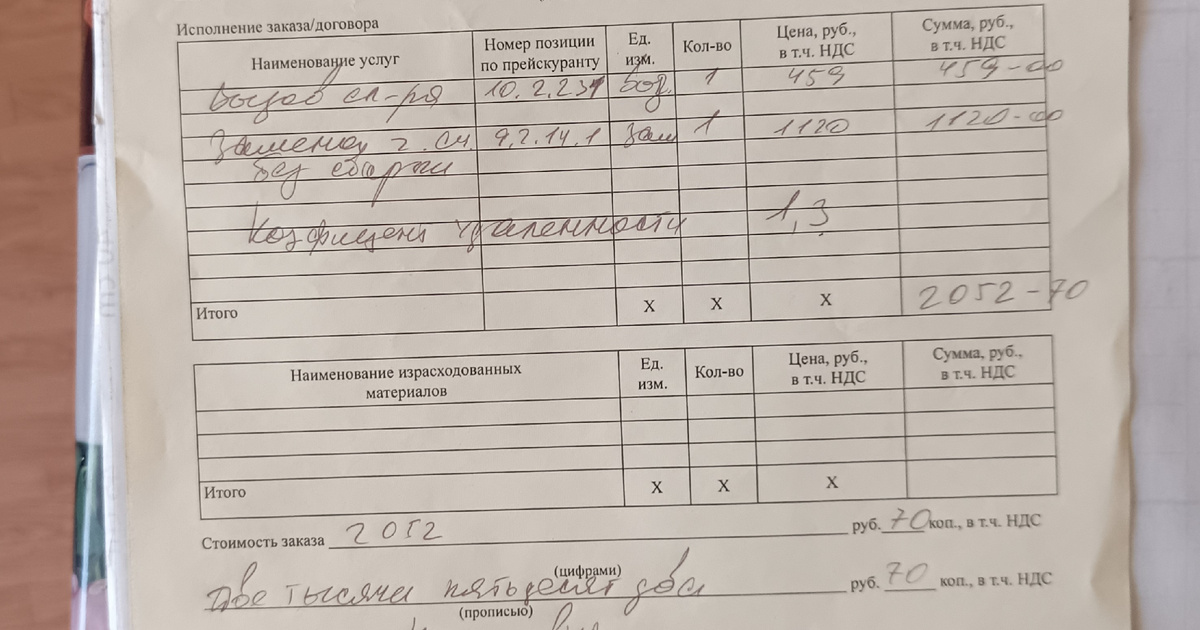 Исполнение заказа/договора
Наименование услуг Номер позиции по прейскуранту Ед. изм. Кол-во Цена, руб., в т.ч. НДС Сумма, руб., в т.ч. НДС
Вызов сл-ря 10.2.231 1 459 459-00
Замена г. сч. 9.2.14.1 зам 1 1120 1120-00
без сварки
Коэфициент удаленности 1,3
Итого X X X 2052-70
Наименование израсходованных материалов Ед. изм. Кол-во Цена, руб., в т.ч. НДС Сумма, руб., в т.ч. НДС
Итого X X X
Стоимость заказа 2052 руб. 70 коп., в т.ч. НДС
(цифрами)
Две тысячи пятьдесят два руб. 70 коп., в т.ч. НДС
(прописью)